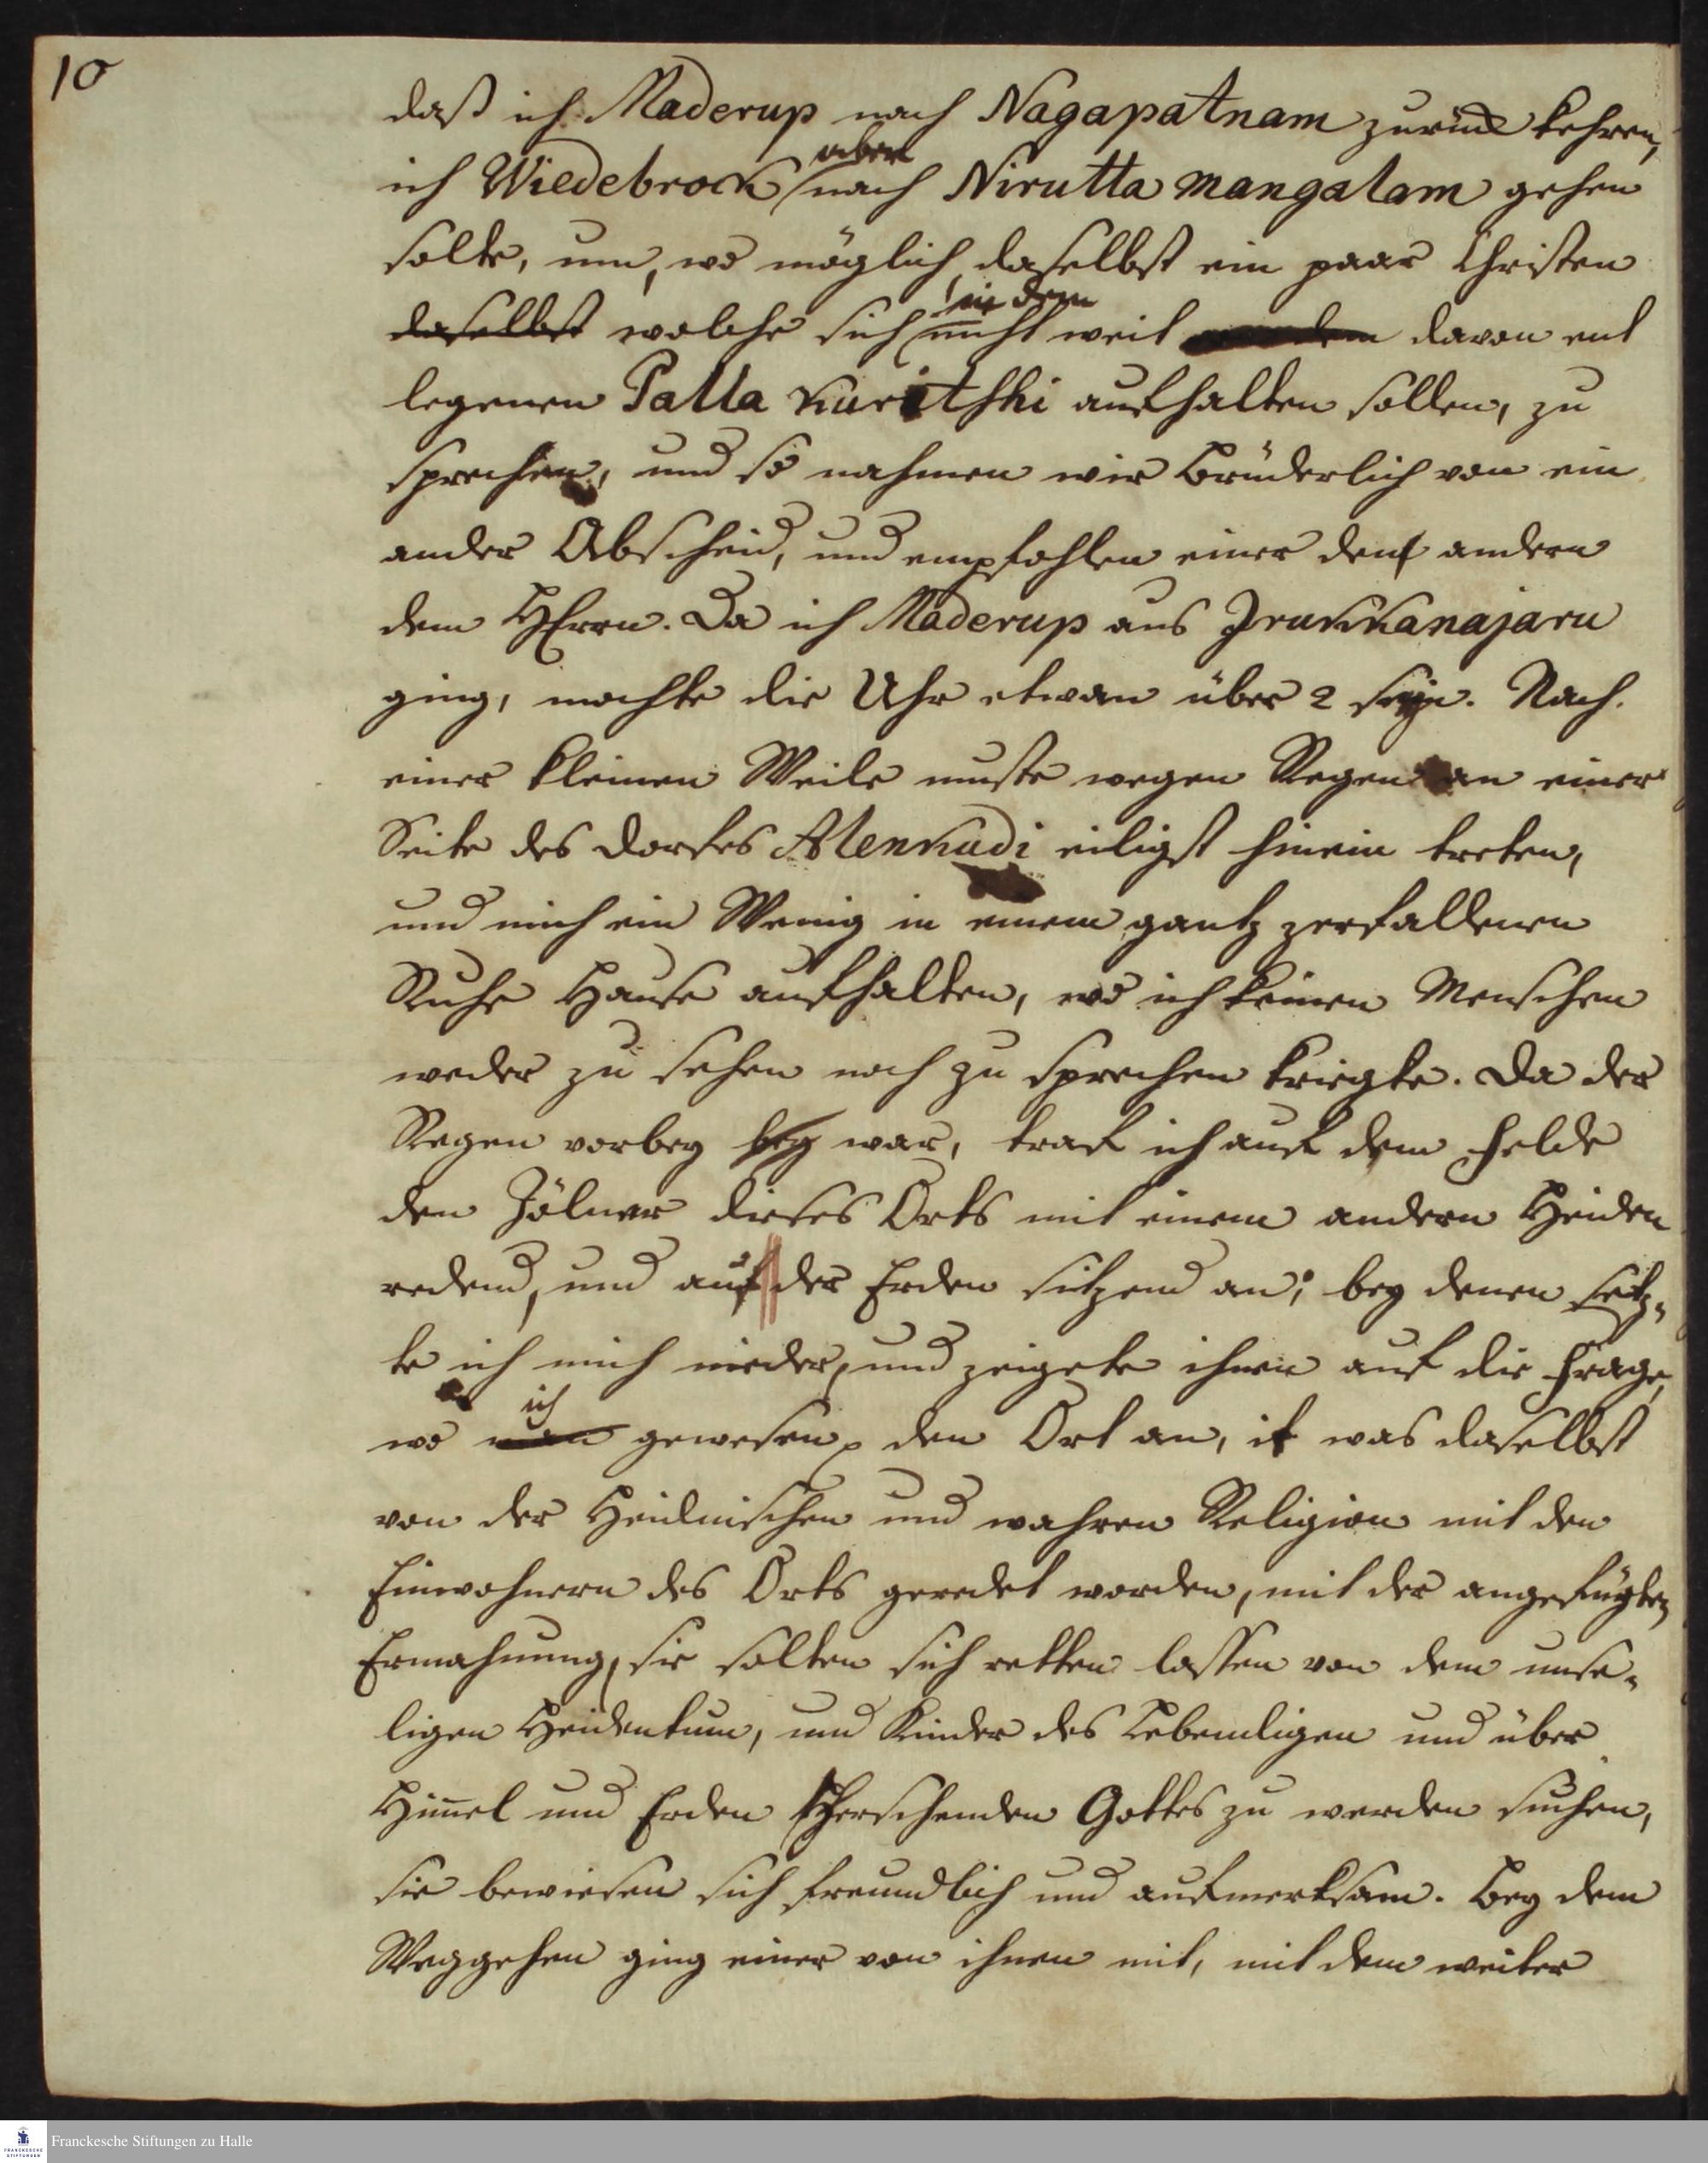 10
daß ich Maderup nach Nagapatnam zurück kehren,
aber
ich Wiedebrock nach Nirutta mangalam gehen
solte, um, wo möglich, daselbst ein paar Christen
in dem
daselbst welche sich nicht weit davon ent
legenen Palla kuritshi aufhalten sollen, zu
sprechen, und so nahmen wir brüderlich von ein
ander Abscheid, und empfohlen einer den andern
dem HErrn. Da ich Maderup aus Irukkanajaru
ging, mochte die Uhr etwan über 2 seyn. Nach
einer kleinen Weile muste wegen Regen an einer
Seite des Dorfes Alenkudi eiligst hinein treten,
und mich ein Wenig in einem gantz zerfallenen
Ruhe Hause aufhalten, wo ich keinen Menschen
weder zu sehen noch zu sprechen kriegte. Da der
Regen vorbey bey war, traf ich auf dem Felde
den Zölner dieses Orts mit einem andern Heiden
redend, und auf der Erden sitzend an; bey denen setz-
te ich mich nieder, und zeigete ihnen auf die Frage,
ich
wo man gewesen, den Ort an, it was daselbst
von der Heidnischen und wahren Religion mit den
Einwohnern des Orts geredet worden, mit der angefügten
Ermahnung, sie solten sich retten lassen von dem unse-
ligen Heidentum, und Kinder des Lebendigen und über
Himel und Erden Herschenden Gottes zu werden suchen,
sie bewiesen sich freundlich und aufmerksam. Bey dem
Weggehen ging einer von ihnen mit, mit dem weiter
FRANCKESCHE STIFTUNGEN
Franckesche Stiftungen zu Halle